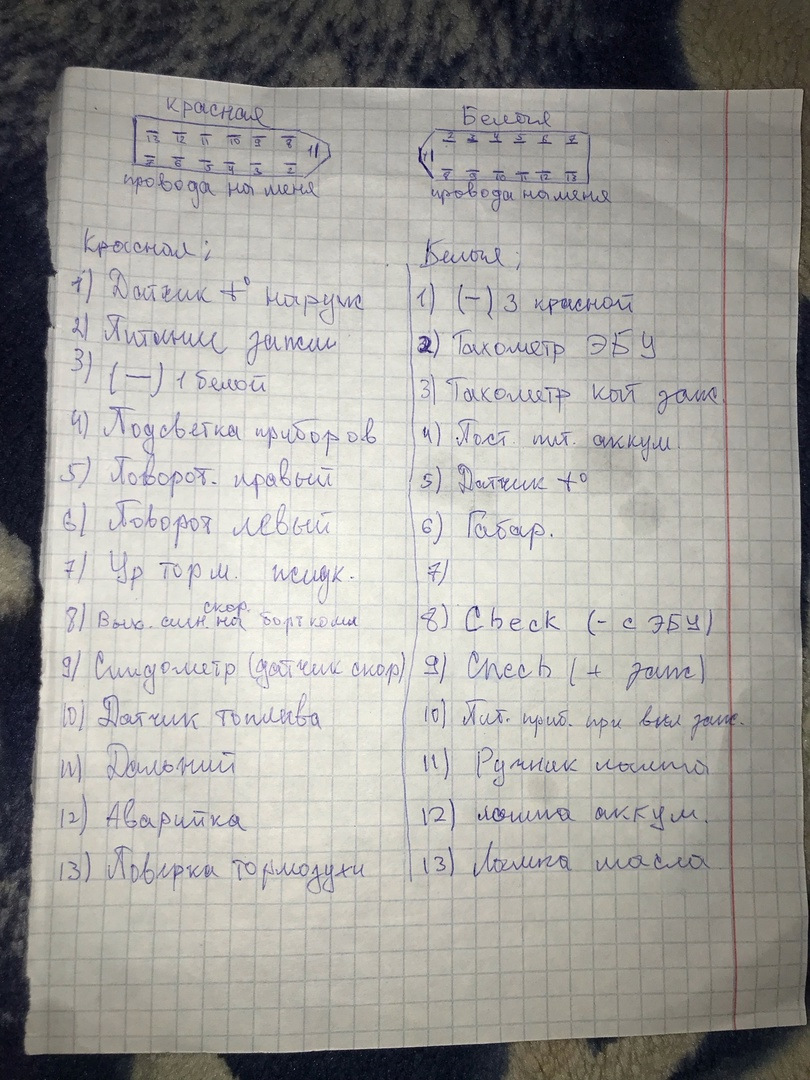 Красная
13 12 11 10 9 8
1
7 6 5 4 3 2
провода на меня
Белая
2 3 4 5 6 7
1
8 9 10 11 12 13
провода на меня
Красная;
1) Датчик t° наруж
2) Питание зажиг
3) (—) 1 белой
4) Подсветка приборов
5) Поворот. правый
6) Поворот левый
7) Ур торм. жидк.
8) Вых. сигн. скор. на борт комп
9) Спидометр (датчик скор)
10) Датчик топлива
11) Дальний
12) Аварийка
13)Поверка тормозухи
Белая;
1) (-) 3 красной
2) Тахометр ЭБУ
3) Тахометр кат заж
4) Пост. пит. аккум
5) Датчик t°
6) Габар.
7)
8) Check (- с ЭБУ)
9) Check (+ заж)
10) Пит. приб. при вкл заж.
11) Ручник лампа
12) лампа аккум.
13) Лампа масла